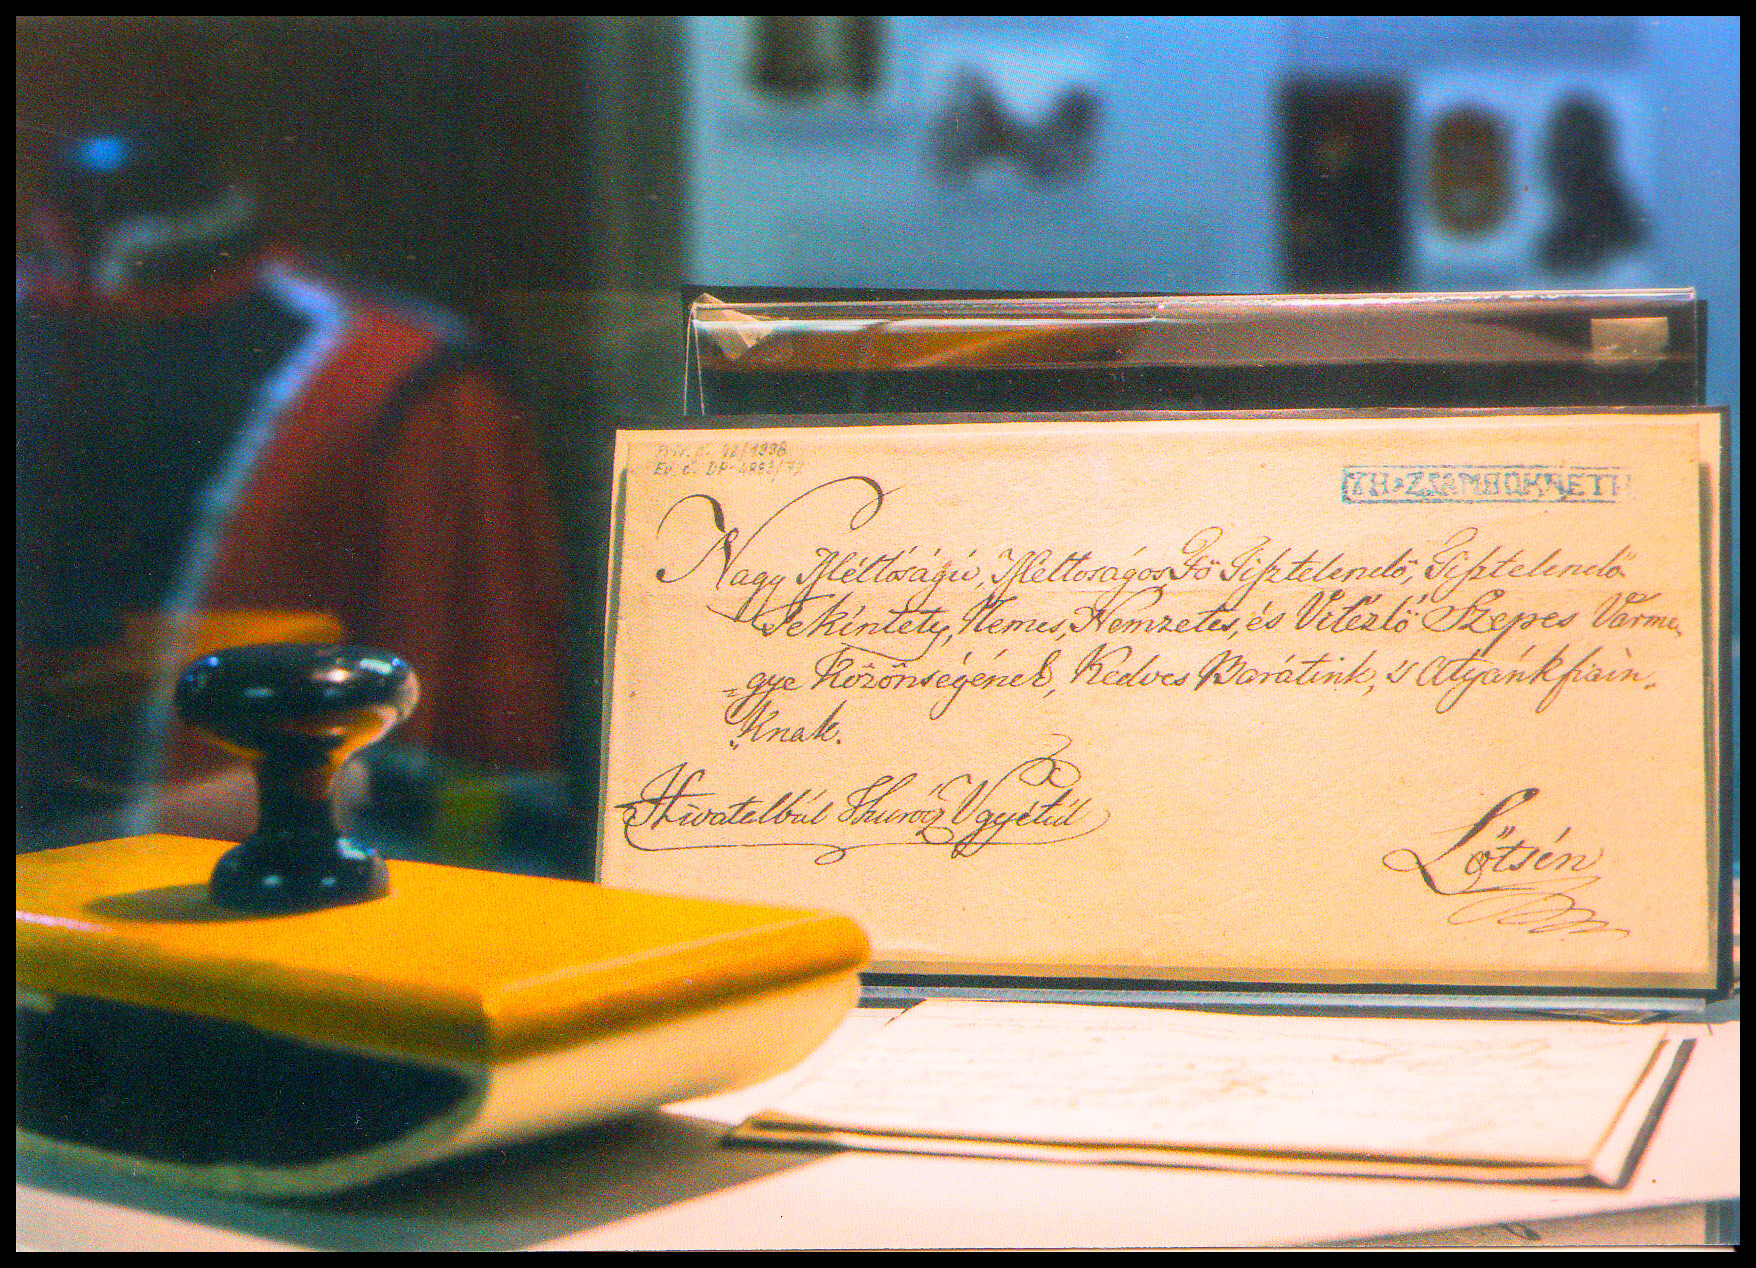 TH-ZSAMBOKRÉTH
Nagy Méltóságú, Méltoságos Fö Tisztelendö, Tisztelendö
Tekintety, Nemes, Nemzetes, és Vitézlö Szepes Várme
gye Közönségének, Kedves Barátink, 's Atyánkfiain,
knak.
Hivatalbúl Thurócz Vgyétül
Lőtsén